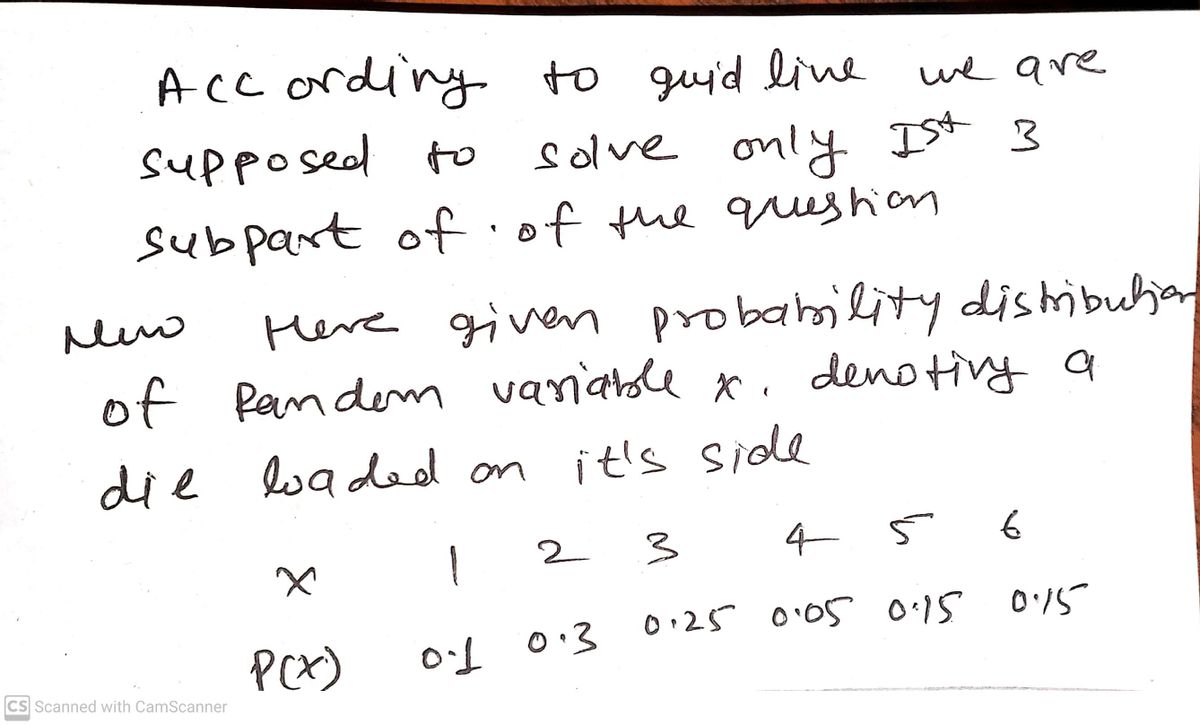 According to guid line we are
supposed to solve only Ist 3
subpart of . of the question
Now Here given probability distribution
of Random variable x. denoting a
die loaded on it's side
X 1 2 3 4 5 6
P(X) 0.1 0.3 0.25 0.05 0.15 0.15
CS Scanned with CamScanner